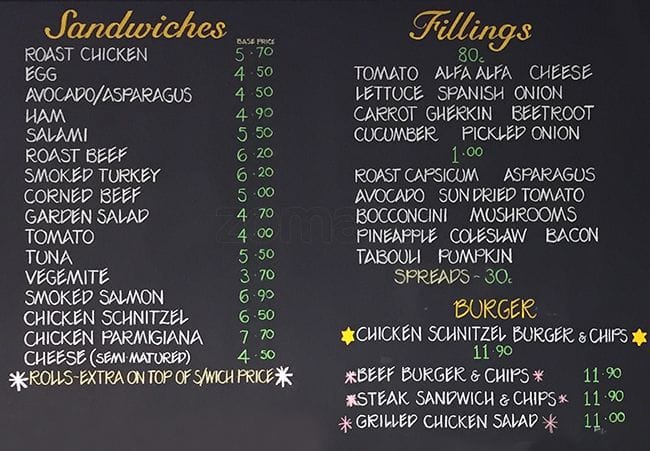 Sandwiches
BASE PRICE
ROAST CHICKEN 5.70
EGG 4.50
AVOCADO/ASPARAGUS 4.50
HAM 4.90
SALAMI 5.50
ROAST BEEF 6.20
SMOKED TURKEY 6.20
CORNED BEEF 5.00
GARDEN SALAD 4.70
TOMATO 4.00
TUNA 5.50
VEGEMITE 3.70
SMOKED SALMON 6.90
CHICKEN SCHNITZEL 6.50
CHICKEN PARMIGIANA 7.70
CHEESE (SEMI-MATURED) 4.50
*ROLLS-EXTRA ON TOP OF S/WICH PRICE*
Fillings
80c
TOMATO ALFA ALFA CHEESE
LETTUCE SPANISH ONION
CARROT GHERKIN BEETROOT
CUCUMBER PICKLED ONION
1.00
ROAST CAPSICUM ASPARAGUS
AVOCADO SUNDRIED TOMATO
BOCCONCINI MUSHROOMS
PINEAPPLE COLESLAW BACON
TABOULI PUMPKIN
SPREADS ~ 30c
BURGER
CHICKEN SCHNITZEL BURGER & CHIPS
11.90
*BEEF BURGER & CHIPS* 11.90
*STEAK SANDWICH & CHIPS* 11.90
*GRILLED CHICKEN SALAD* 11.00